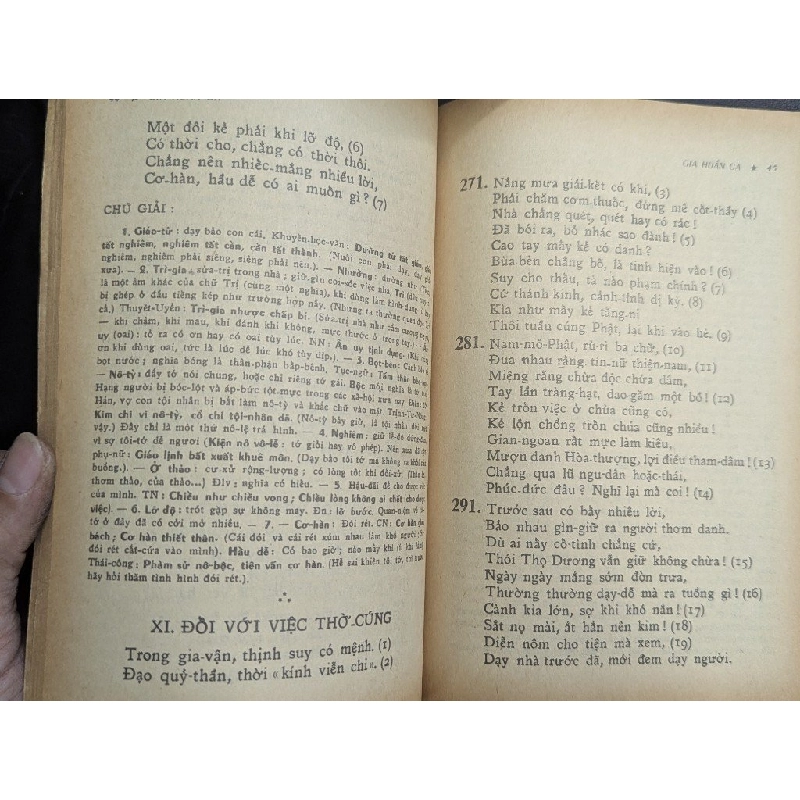 Một đôi kẻ phải khi lỡ độ, (6)
Có thời cho, chẳng có thời thôi.
Chẳng nên nhiếc-mắng nhiều lời,
Cơ-hàn, hầu dễ có ai muốn gì ? (7)
CHÚ GIẢI :
1. Giáo-tử : dạy bảo con cái. Khuyến-học-văn : Dưỡng tử tất giáo, giáo
tất nghiêm, nghiêm tất cần, cần tất thành. (Nuôi con phải dạy, dạy phải
nghiêm, nghiêm phải siêng, siêng phải nên.). — Nhưỡng :
xưa). — 2. Trị-gia : sửa-trị trong nhà ; giữ-gìn coi-sóc việc nhà.
là một âm khác của chữ Trị (cùng một nghĩa), khi dùng làm
bị ghép ở đầu tiếng kép như trường hợp này.
cả.) Thuyết-Uyển : Trị-gia nhược chấp bỉ.
— khi chăm, khi mau, khi đánh khi không,
uy (oai) : tỏ ra có ơn hay có oai tùy lúc. NN : Ân uy tịnh dụng.
ơn khi dùng oai, tức là lúc dễ lúc khó tùy dịp.). — 3. Bọt-bèo :
bọt nước ; nghĩa bóng là thân-phận bấp-bênh. Tục-ngữ :
— Nô-tỳ : đầy tớ nói chung, hoặc chỉ riêng tớ gái.
Hạng người bị bóc-lột và áp-bức tột-mực trong các xã-hội xưa
Hán, vợ con tội nhân bị bắt làm nô-tỳ và khắc chữ vào mặt.
Kim chi vi nô-tỳ, cổ chi tội-nhân dã. (Nô-tỳ bây giờ, là tội nhân đời
vậy.) Đây chỉ là một thứ nô-lệ trá hình. — 4. Nghiêm :
vì sợ tôi-tớ dễ ngươi (Kiện nô vô-lễ : tớ giỏi hay vô phép).
phụ-nữ : Giáo lịnh bất xuất khuê môn. (Dạy bảo tôi tớ mà không ra khỏi
buồng.). — Ở thảo : cư xử rộng-lượng ; có lòng tốt khi đối-xử
thơm thảo, của thảo...) Đlv ; nghĩa có hiếu. — 5. Hậu-đãi để cho được
của mình. TN : Chiều như chiều vong ; Chiều lòng không ai chết cho được
việc). — 6. Lỡ độ : trót gặp sự không may. Đn : lỡ bước.
tớ ở đây đã có cởi mở nhiều. — 7. — Cơ-hàn : Đói rét. CN : Cơ hàn
bách ; Cơ hàn thiết thân. (Cái đói và cái rét xúm nhau làm khổ người
đói rét cắt-cứa vào mình). Hầu dễ : Có bao giờ ; nào mấy khi
Thái-công : Phàm sử nô-bộc, tiện vấn cơ hàn. (Hễ sai khiến tôi tớ,
hãy hỏi thăm tình hình đói rét.).
XI. ĐỐI VỚI VIỆC THỜ-CÚNG
Trong gia-vận, thịnh suy có mệnh. (1)
Đạo quỷ-thần, thời « kính viễn chi ». (2)
GIA HUẤN CA ★ 45
271. Nắng mưa giải-kết có khi, (3)
Phải chăm cơm-thuốc, đừng mê cốt-thầy (4)
Nhà chẳng quét, quét hay có rác !
Đã bói ra, bỏ nhác sao đành ! (5)
Cao tay mấy kẻ có danh ?
Bùa-bên chẳng bõ, là tình hiện vào ! (6)
Suy cho thấu, tà nào phạm chính ? (7)
Cứ thành kính, cảnh-tỉnh dị kỳ. (8)
Kìa như mấy kẻ tăng-ni
Thôi tuần cúng Phật, lại khi vào hè. (9)
281. Nam-mô-Phật, rù-rì ba chữ, (10)
Đua nhau rằng tín-nữ thiện-nam, (11)
Miệng rằng chừa độc chừa dâm,
Tay lần tràng-hạt, dao găm một bồ ! (12)
Kẻ trộn việc ở chùa cũng có,
Kẻ lộn chồng trốn chúa cũng nhiều !
Gian-ngoan rất mực làm kiêu,
Mượn danh Hòa-thượng, lợi điều tham-dâm ! (13)
Chẳng qua lũ ngu-dân hoặc-thái,
Phúc-đức đâu ? Nghĩ lại mà coi ! (14)
291. Trước sau có bấy nhiêu lời,
Bảo nhau gìn-giữ ra người thơm danh.
Dù ai nấy cố-tình chẳng cứ,
Thói Thọ Dương vẫn giữ không chừa ! (15)
Ngày ngày mắng sớm đòn trưa,
Thường thường dạy-dỗ mà ra tuồng gì ! (16)
Cành kia lớn, sợ khi khó nắn ! (17)
Sắt nọ mài, ắt hẳn nên kim ! (18)
Diễn nôm cho tiện mà xem, (19)
Dạy nhà trước đã, mới đem dạy người.